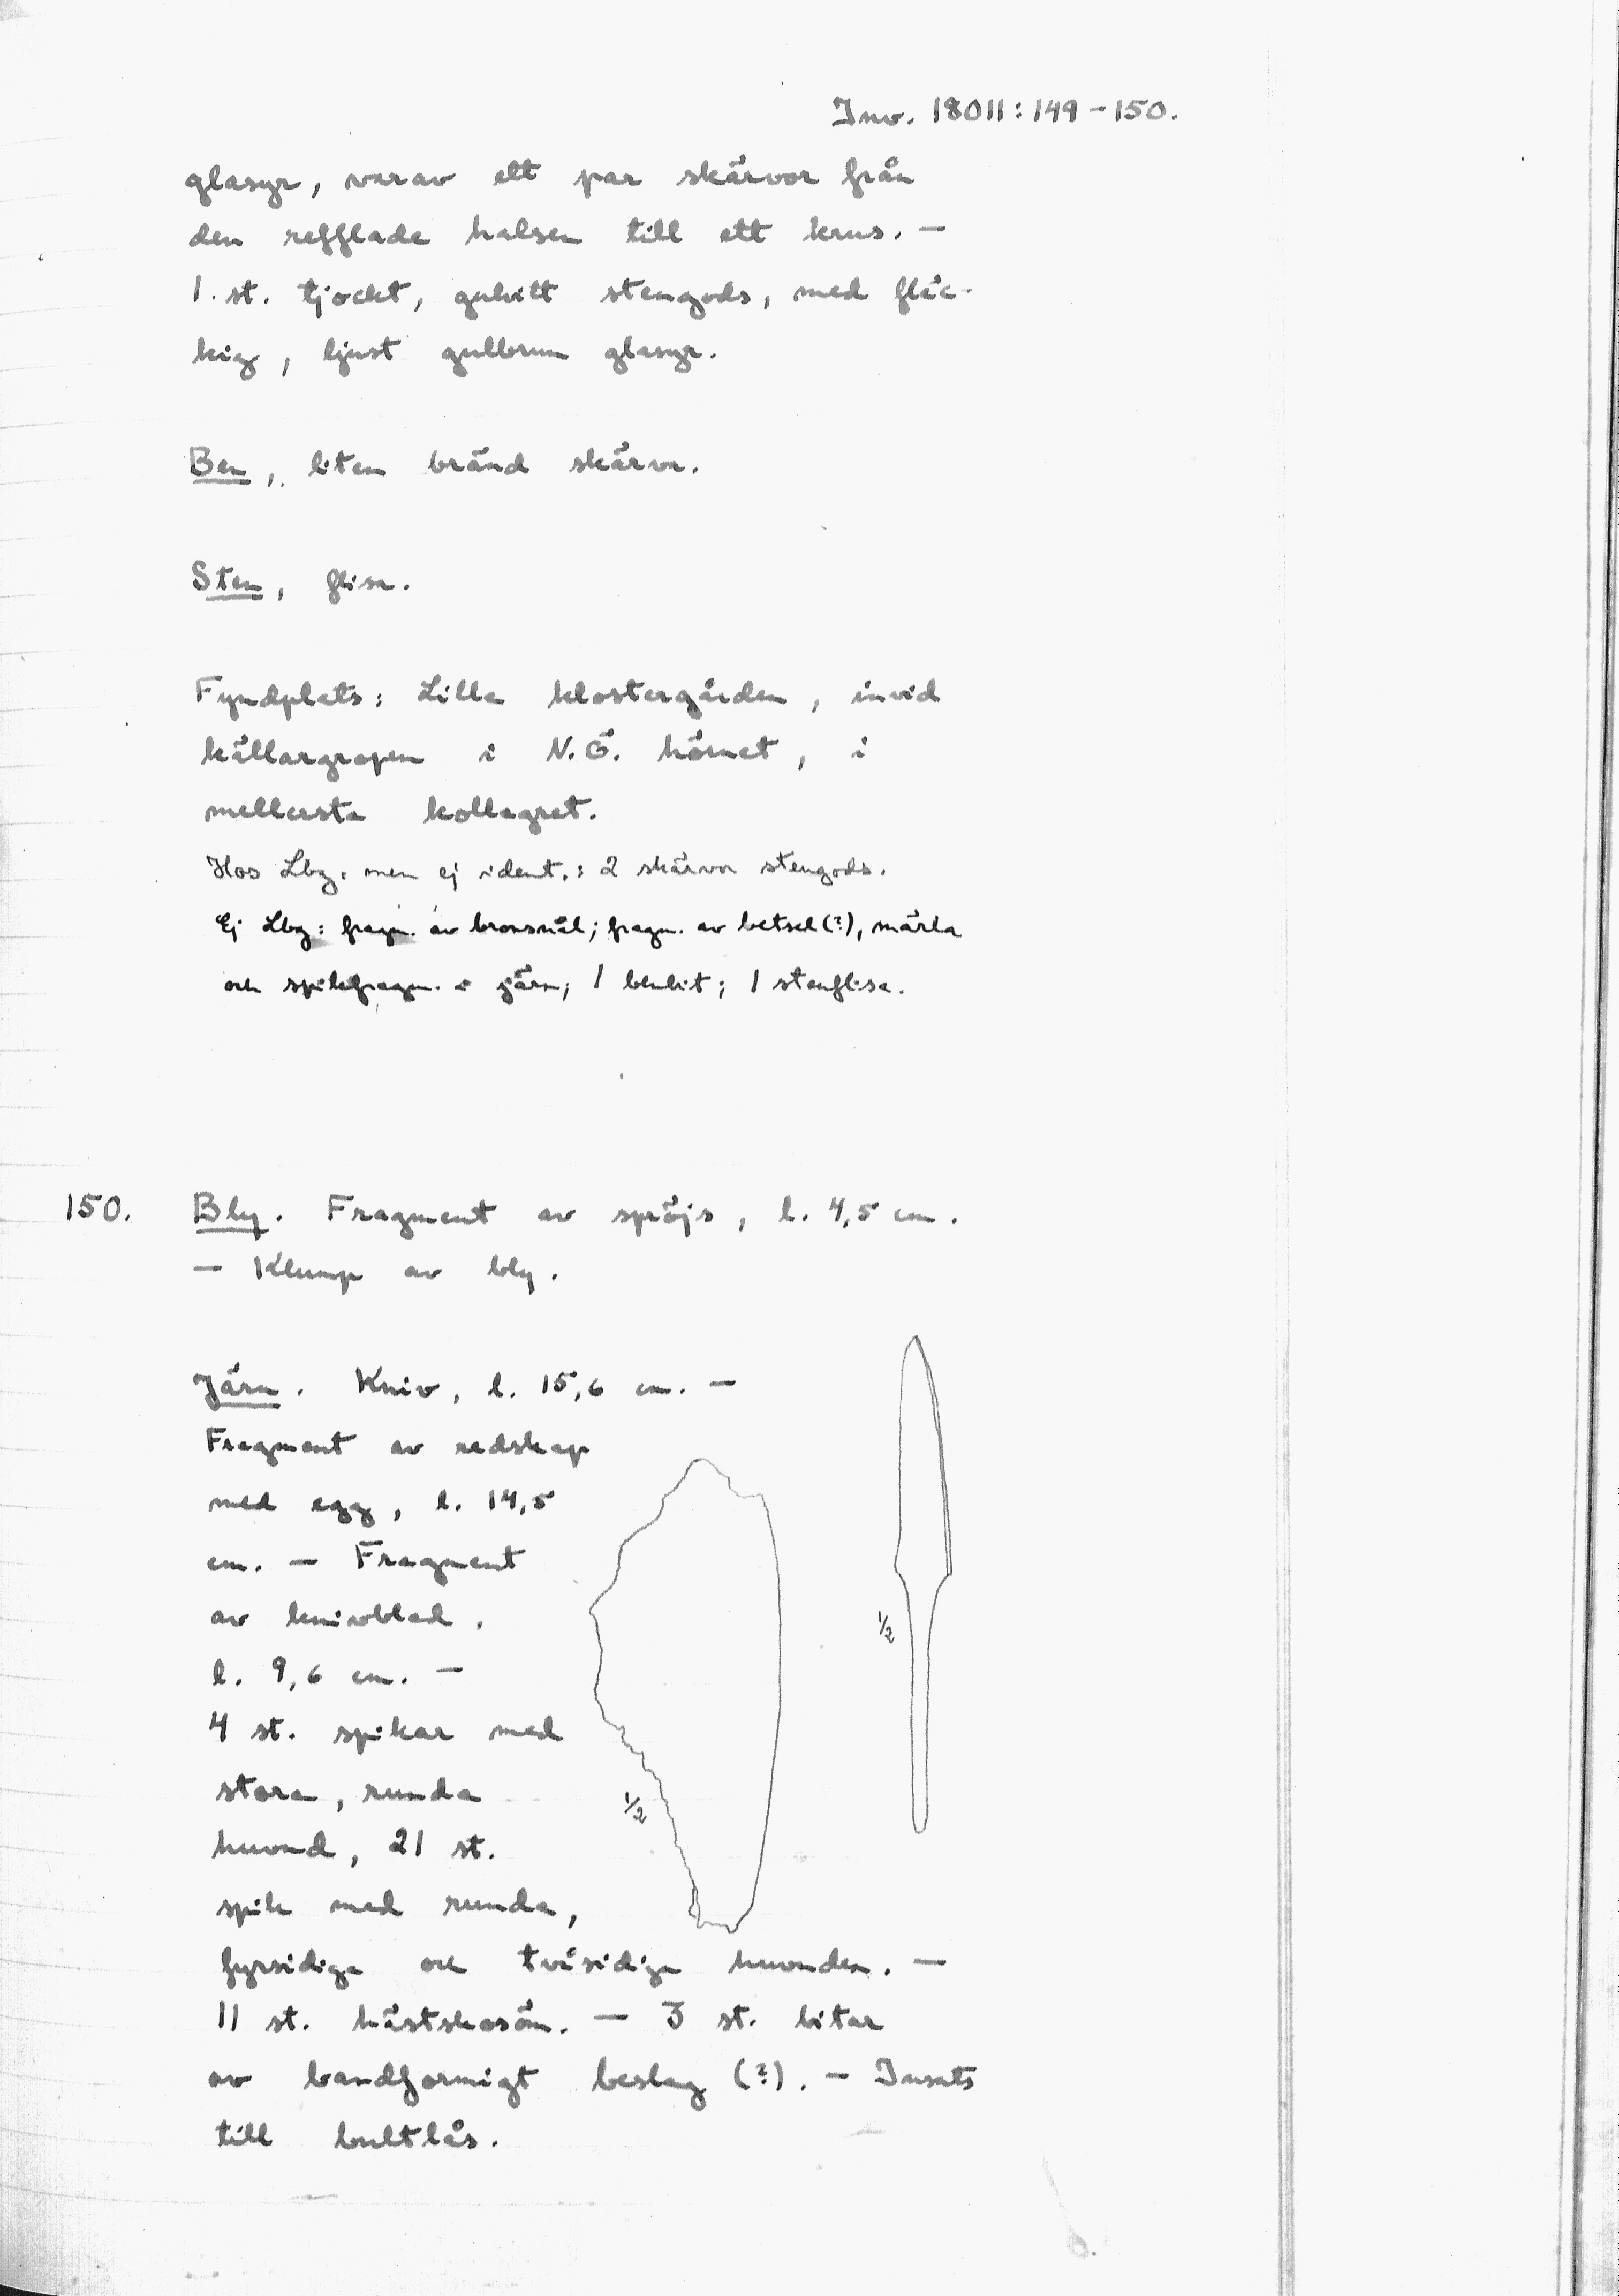 Inv. 18011:149-150.
glasyr, varav ett par skärvor från
den refflade halsen till ett krus. —
1 st. tjockt, gulvitt stengods, med fläc-
kig, ljust gulbrun glasyr.
Ben, liten bränd skärva.
Sten, flisa.
Fyndplats: Lilla klostergården, invid
källargropen i N.Ö. hörnet, i
mellersta kollagret.
Hos Lbg. men ej ident.: 2 skärvor stengods.
Ej Lbg: fragm. av bronsnål; fragm. av betsel(?), märla
och spikfragm. i järn; 1 benbit; 1 stenflisa.
150. Bly. Fragment av spröjs, l. 4,5 cm.
— Klump av bly.
Järn. Kniv, l. 15,6 cm. —
Fragment av redskap
med egg, l. 14,5
cm. — Fragment
av knivblad,
l. 9,6 cm. —
4 st. spikar med
stora, runda
huvud, 21 st.
spik med runda,
fyrsidiga och tvåsidiga huvuden. —
11 st. hästskosöm. — 3 st. bitar
av bandformigt beslag (?). — Insats
till bultlås.
1/2
1/2